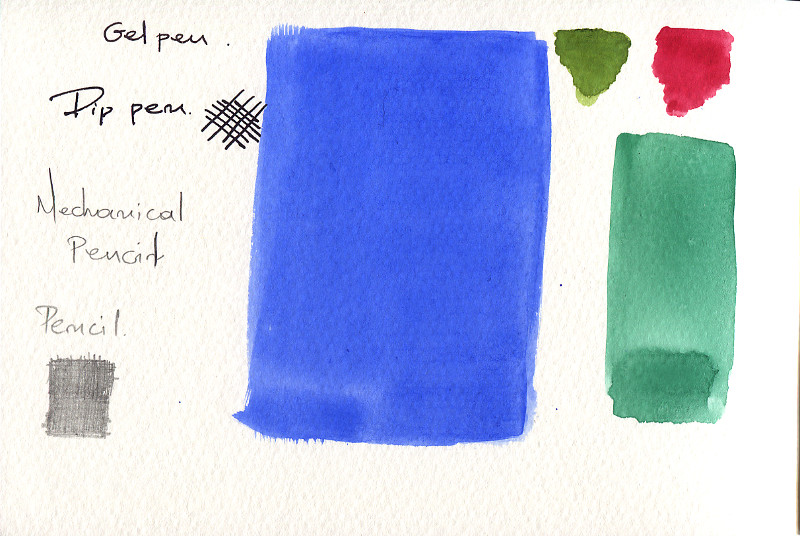 Gel pen.
Dip pen.
Mechanical
Pencil
Pencil.